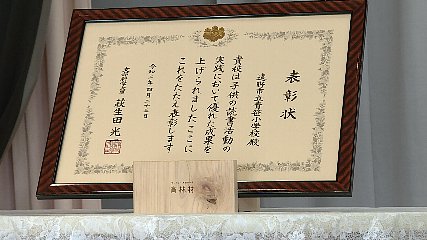 表彰状
遠野市立青笹小学校殿
貴校は子供の読書活動の
実践において優れた成果を
上げられましたここに
これをたたえ表彰します
令和三年四月二十三日
文部科学大臣 萩生田光一